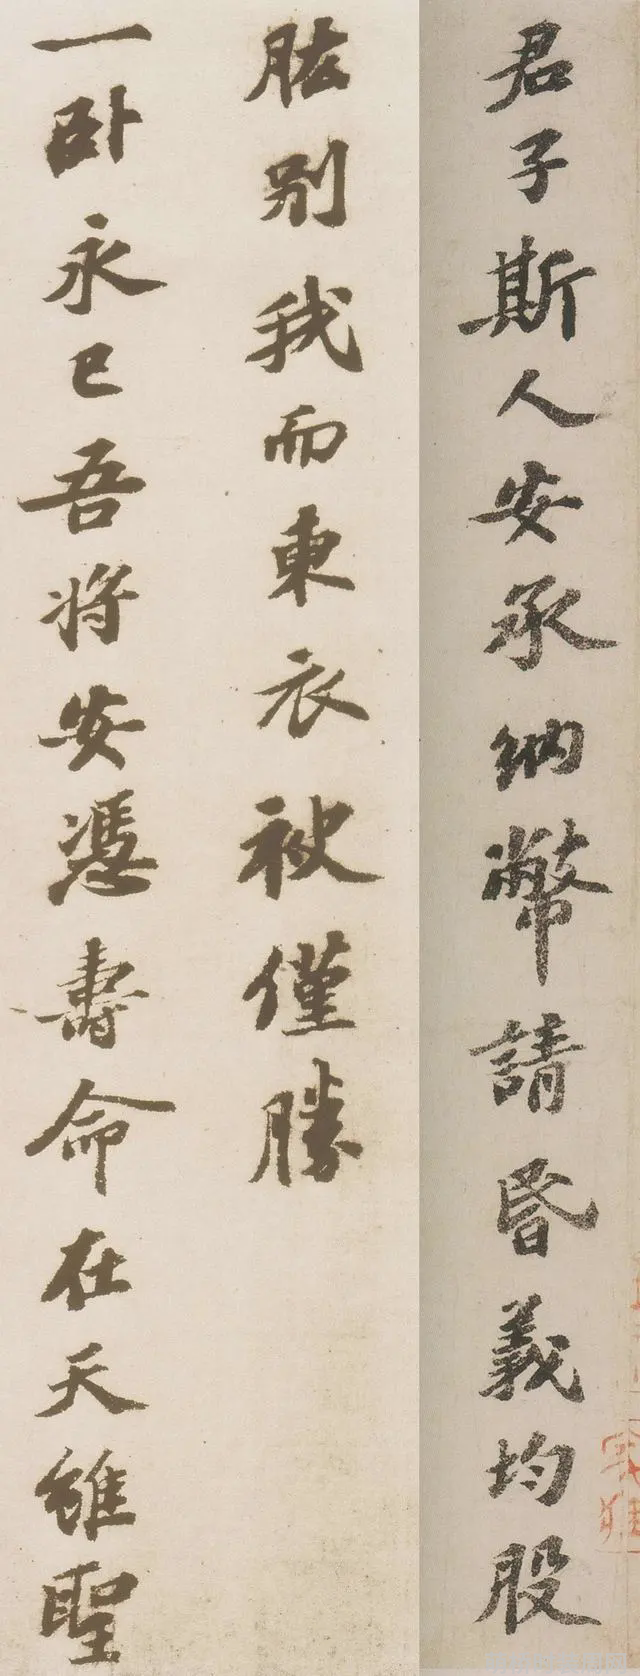 君子斯人安承納幣請昬義均股
肱別我而東衣袂僅勝
一卧永已吾將安憑壽命在天雖聖